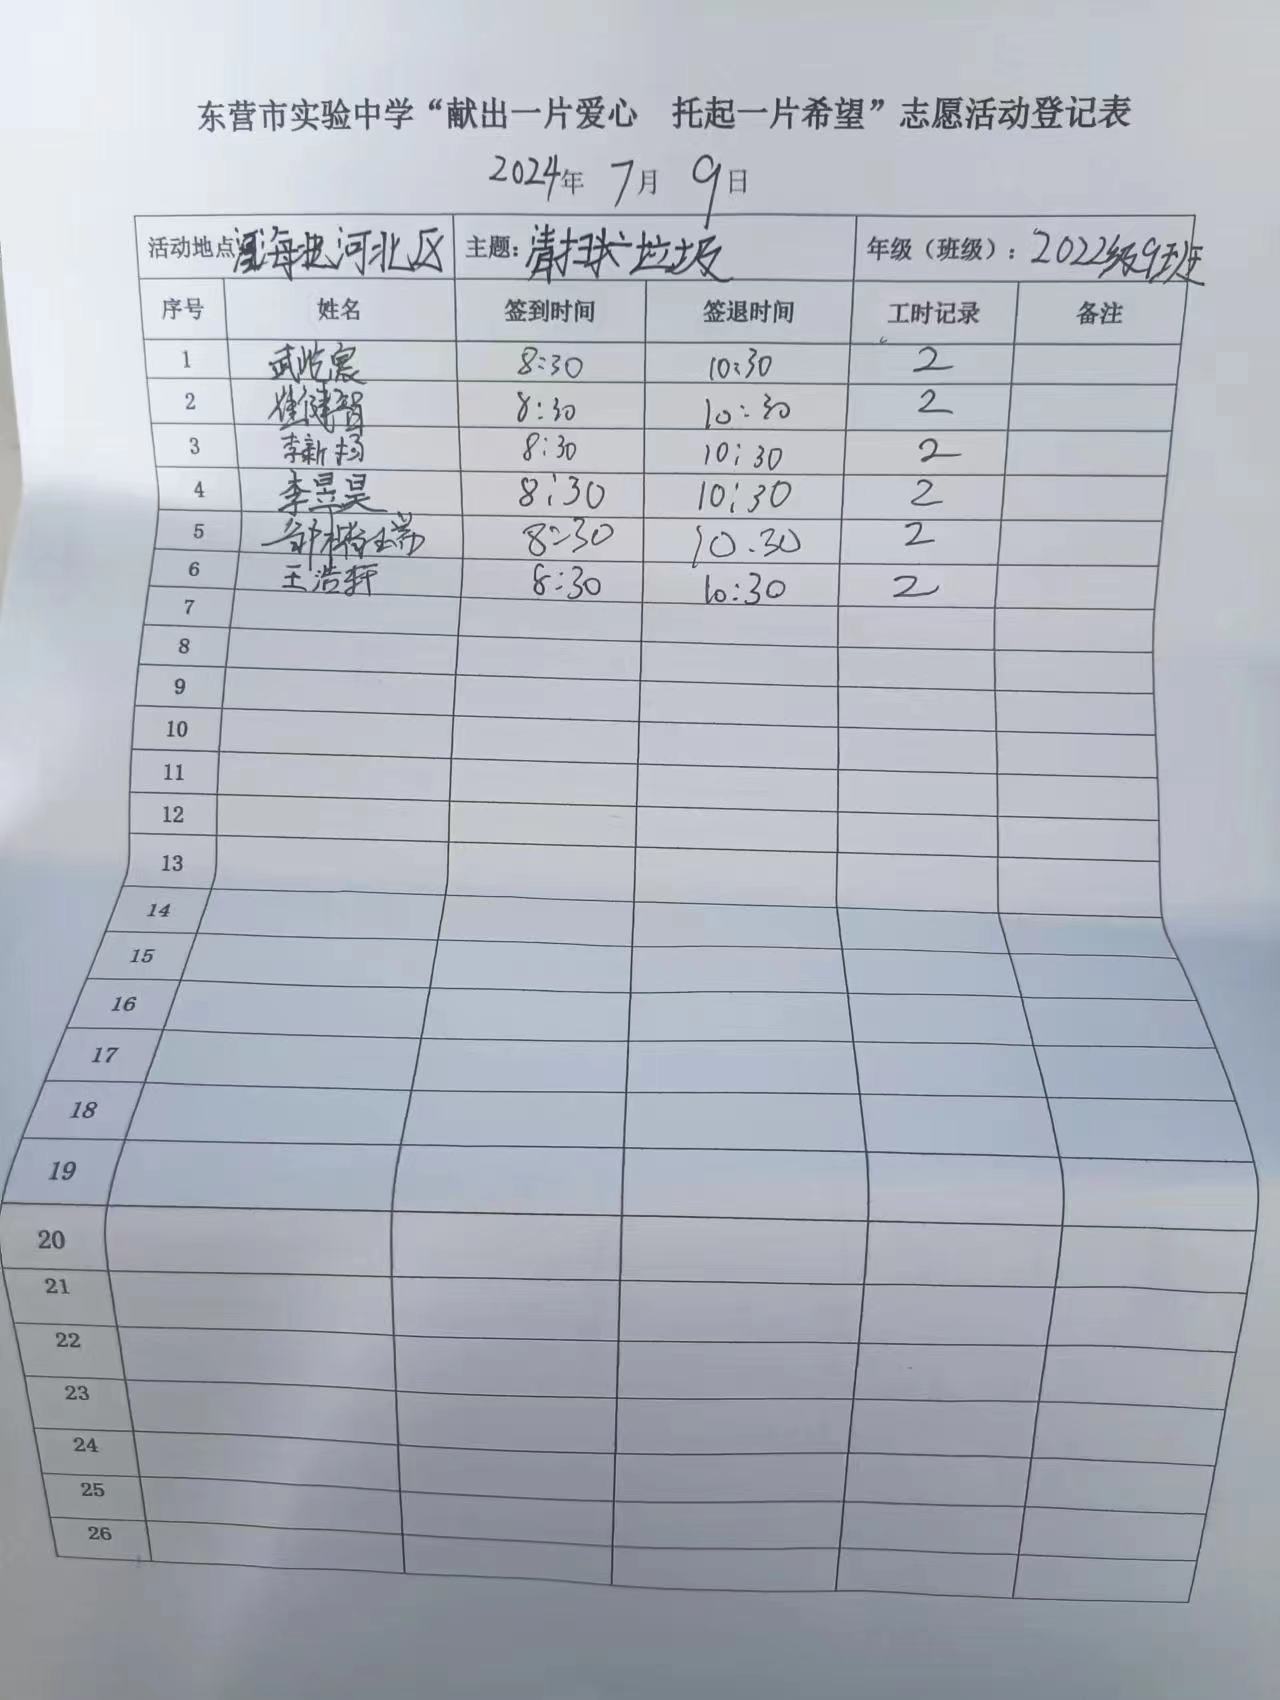 东营市实验中学“献出一片爱心 托起一片希望”志愿活动登记表
2024年 7月 9日
活动地点 河北区 主题：清扫 垃圾 年级（班级）：2022级9班
序号 姓名 签到时间 签退时间 工时记录 备注
1 8:30 10:30 2
2 8:30 10:30 2
3 李新扬 8:30 10:30 2
4 李昱昊 8:30 10:30 2
5 8:30 10.30 2
6 王浩轩 8:30 10:30 2
7
8
9
10
11
12
13
14
15
16
17
18
19
20
21
22
23
24
25
26